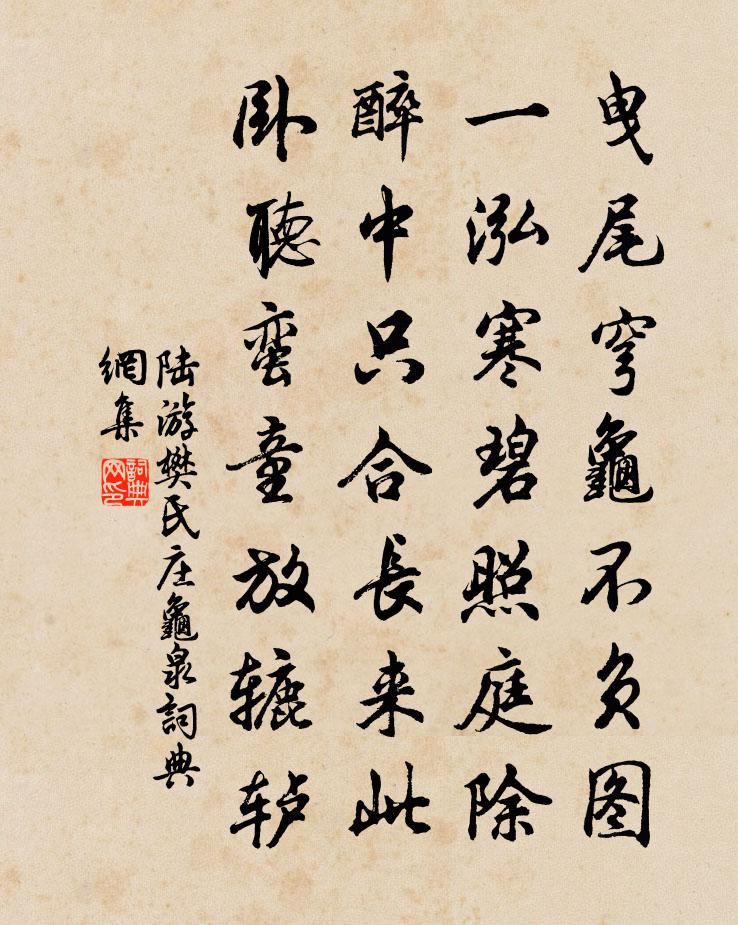 曳尾穹龜不负图
一泓寒碧照庭除
醉中只合長来此
卧聽蛮童放辘轳
陆游樊氏庄龜泉詞典
網集
詞典
网印